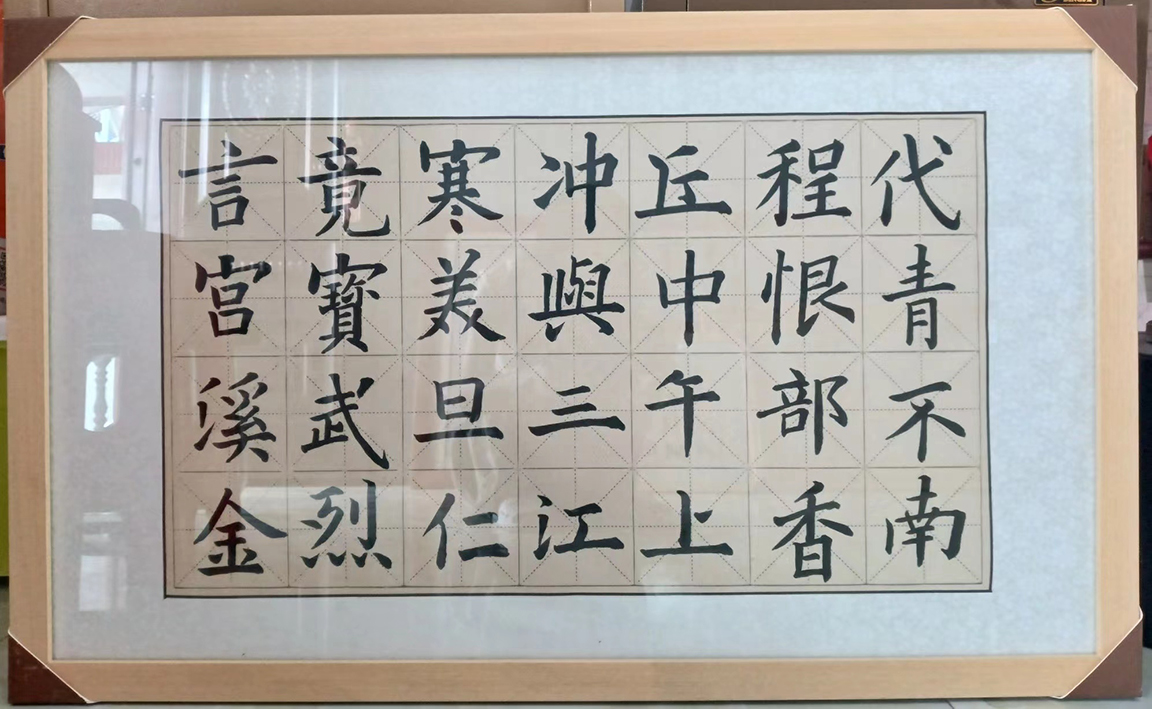 代青不南
程恨部香
丘中午上
冲與三江
寒美旦仁
竟寶武烈
言宫溪金